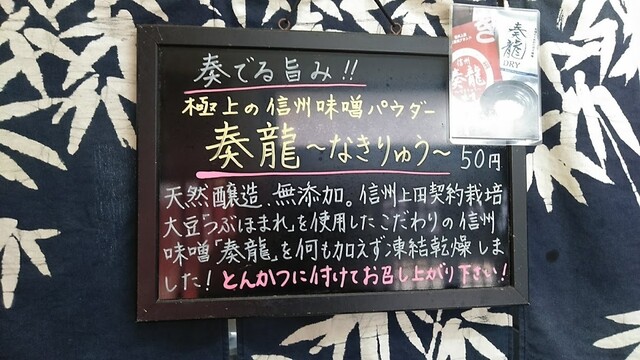 奏でる旨み!!
極上の信州味噌パウダー
奏龍～なきりゅう～ 50円
天然醸造、無添加。信州上田契約栽培
大豆「つぶほまれ」を使用したこだわりの信州
味噌「奏龍」を何も加えず凍結乾燥しま
した!とんかつに付けてお召し上がり下さい!
奏龍
DRY
信州
奏龍